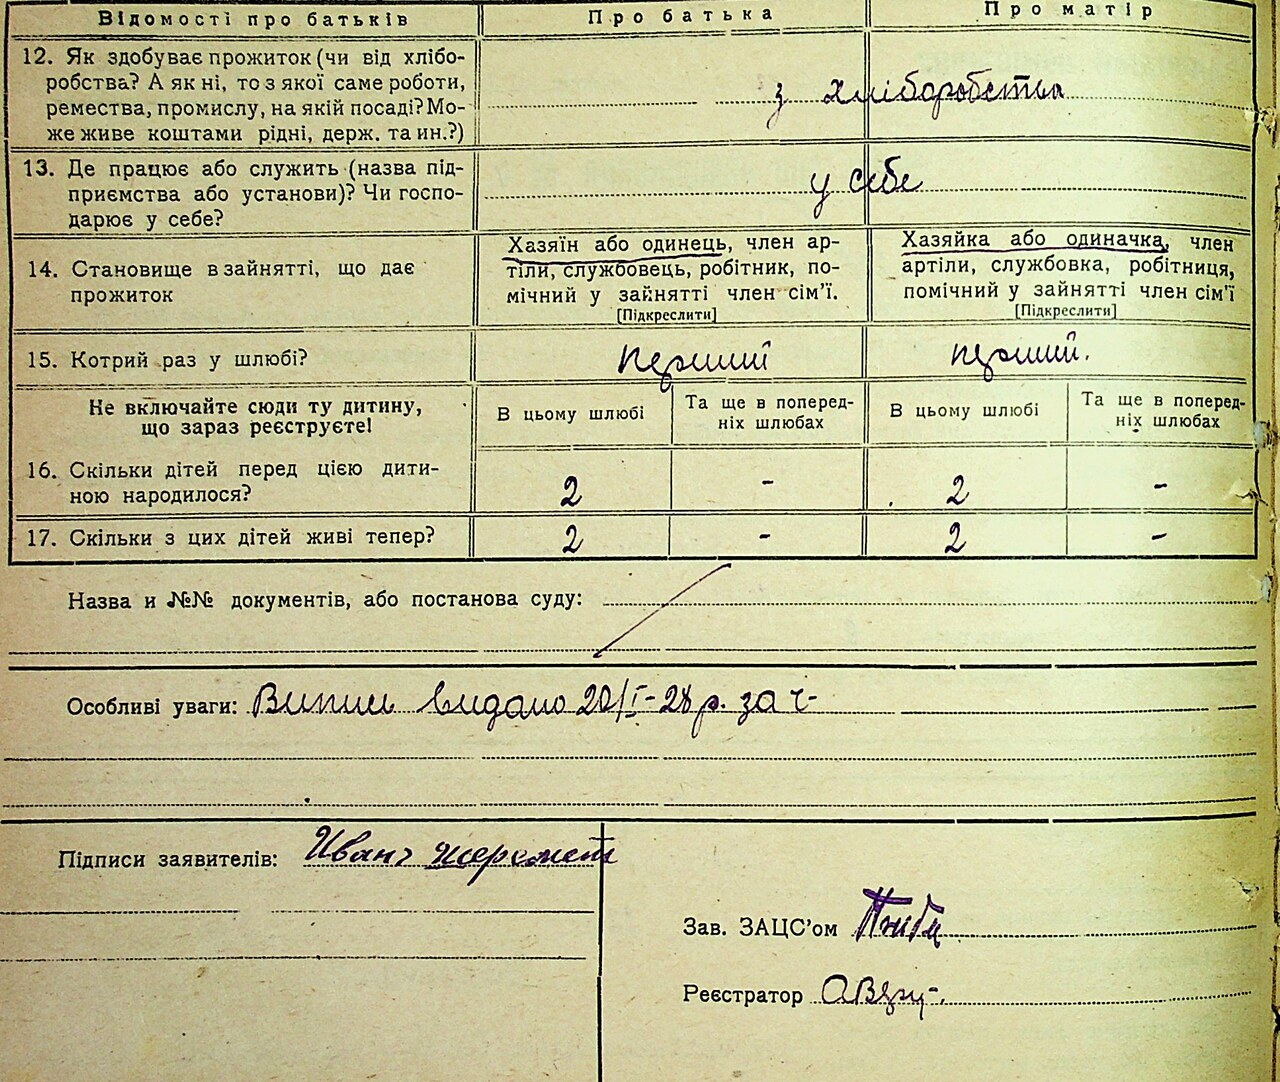 Відомості про батьків Про батька Про матір
12. Як здобуває прожиток (чи від хлібо-
робства? А як ні, то з якої саме роботи,
ремества, промислу, на якій посаді? Мо-
же живе коштами рідні, держ. та ин.?)
з хліборобства
13. Де працює або служить (назва під-
приємства або установи)? Чи госпо-
дарює у себе?
у себе
14. Становище в зайнятті, що дає
прожиток
Хазяїн або одинець, член ар-
тіли, службовець, робітник, по-
мічний у зайнятті член сім'ї.
[Підкреслити]
Хазяйка або одиначка, член
артіли, службовка, робітниця,
помічний у зайнятті член сім'ї
[Підкреслити]
15. Котрий раз у шлюбі? перший перший.
Не включайте сюди ту дитину,
що зараз реєструєте!
В цьому шлюбі
Та ще в поперед-
ніх шлюбах
В цьому шлюбі
Та ще в поперед-
ніх шлюбах
16. Скільки дітей перед цією дити-
ною народилося?
2 - 2 -
17. Скільки з цих дітей живі тепер? 2 - 2 -
Назва и №№ документів, або постанова суду:
Особливі уваги: видано 20/I-28 р. за ч-
Підписи заявителів: Иванъ Шеремет
Зав. ЗАЦС'ом
Реєстратор